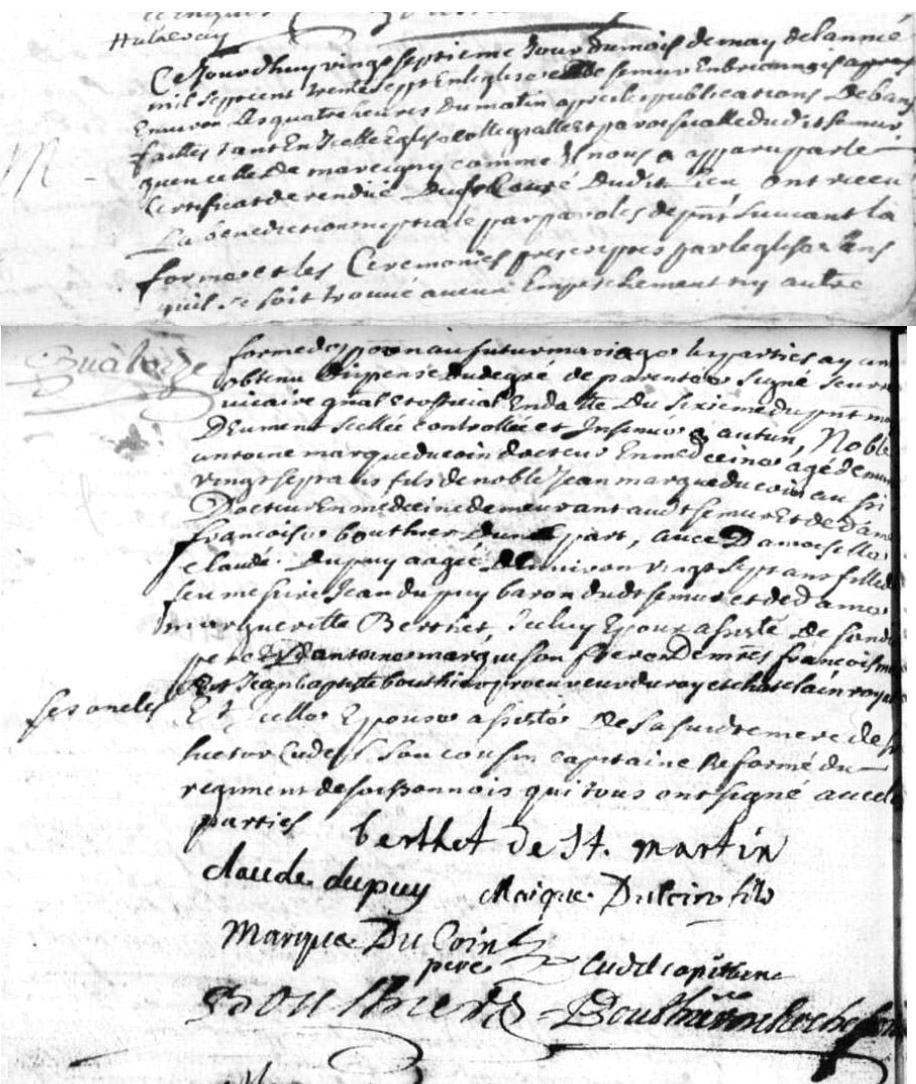 Ce Jourdhuy vingt septieme Jour du mois de may de lannée
mil sept cent trente sept En leglise de semur En brionnois apres
Environ les quatre heures du matin apres les publications De bans
faittes tant En Icelle Eglise collegialle Et paroissialle dudit semur
quen celle de marcigny comme Il nous a apparu par le
Certificat de rendue Du sr Curé Dudit Lieu Ont receu
La benediction nuptiale par paroles de pnt suivant la
forme et les Ceremonies prescriptes par leglise sans
quil se soit trouvé aucun Empeschement ny autre
Quatorze
forme dopposon au futur mariage les parties ayant
obtenu Dispense du degré de parentée signé
vicaire gnal et official En datte Du sixieme du pnt mois
Deument scellée controllée et Insinuée a autun, Noble
antoine marque ducoin docteur En medecine agé de
vingt sept ans fils de noble Jean marque du coin aussi
Docteur En medecine demeurant audt semur Et de Dame
francoise bouthier Dune part, avec Damoiselle
claude Dupuy aagée Denviron vingt sept ans fille de
feu messire Jean dupuy baron dudt semur et de Dame
margueritte Berthet, Iceluy Epoux assisté de sondt
pere Et Dantoine marque son frere De mres francois
Et Jean baptiste bouthier procureur du roy et chatelain royal
ses oncles
Et Icelle Epouse assistée de sa susdte mere de
hector Cudel son cousin capitaine Reformé du
regiment de soissonnois qui tous ont signé avec les
parties
berthet de St. martin
claude dupuy Marque Ducoin fils
Marque Du Coin
pere
Cudel capitaine
Bouthier